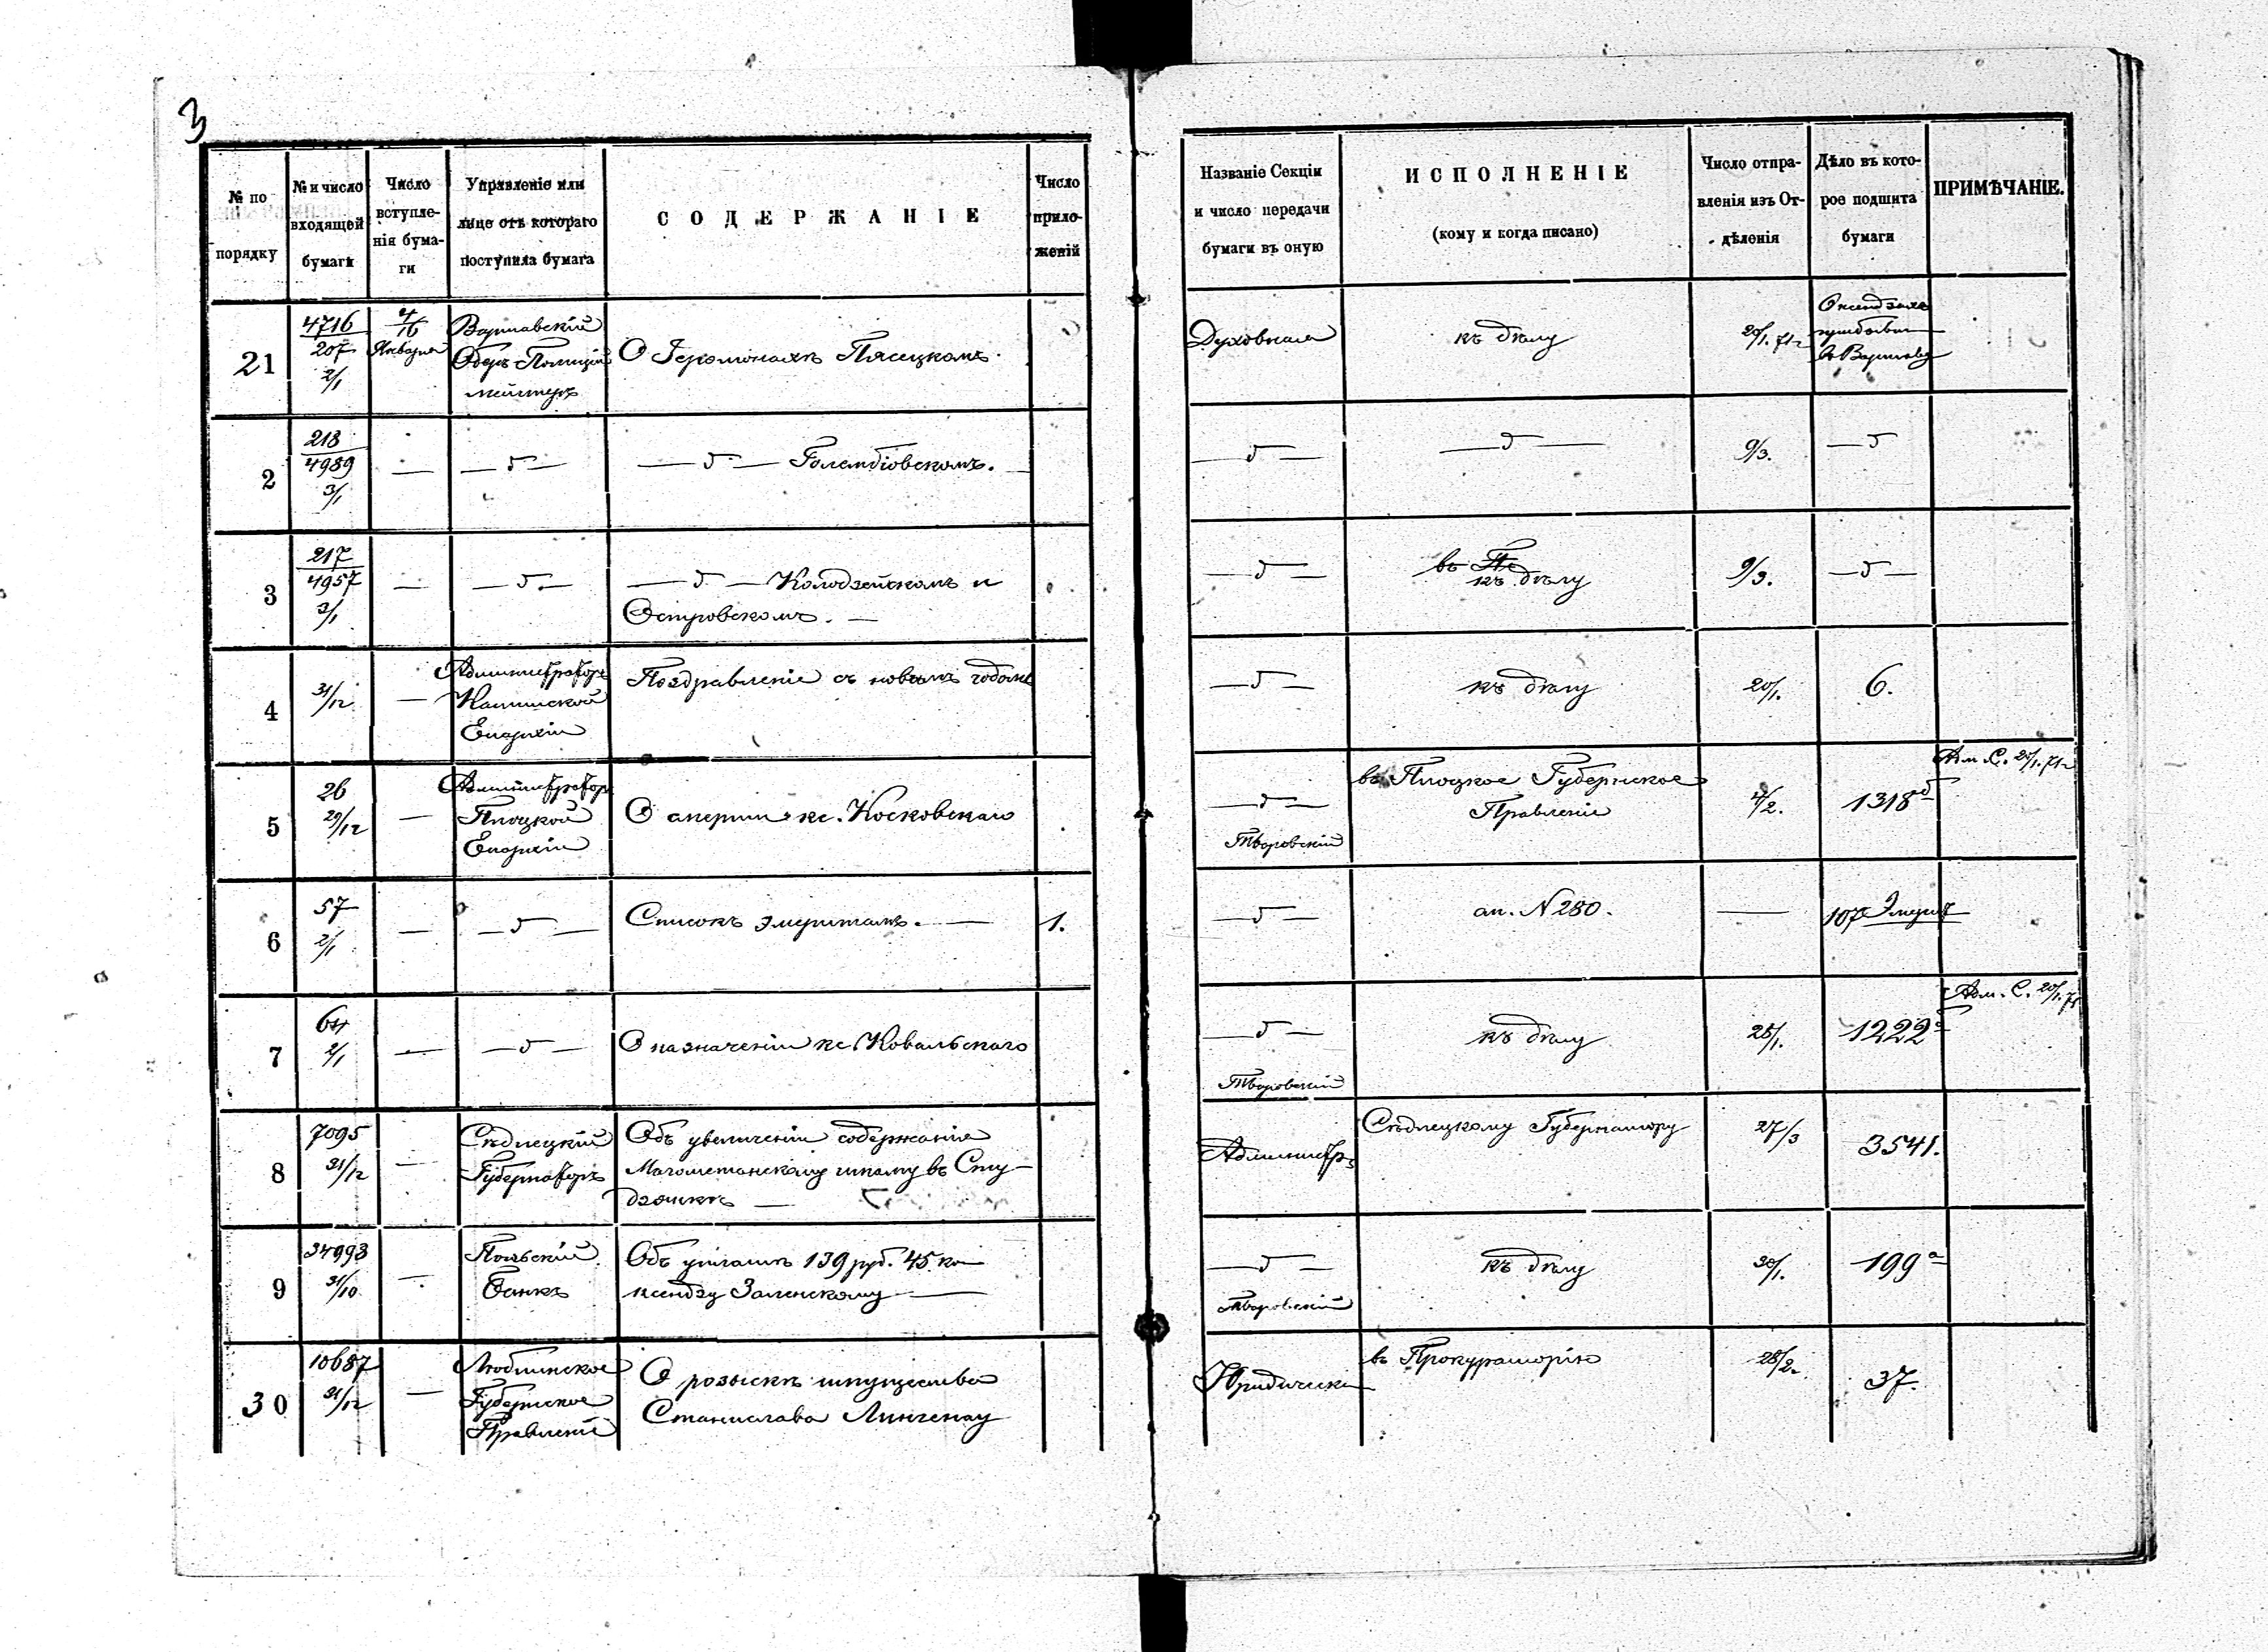 3
№ по порядку
№ и число входящей бумаги
Число вступле-нія бума-ги
Управленіе или лице отъ котораго поступила бумага
СОДЕРЖАНІЕ
Число прило-женій
Названіе Секціи и число передачи бумаги въ оную
ИСПОЛНЕНІЕ
(кому и когда писано)
Число отпра-вленія изъ От-дѣленія
Дѣло въ кото-рое подшита бумаги
ПРИМѢЧАНІЕ.
21
4716
207
2/1
4/16
Января
Варшавскій
Оберъ-Полиціи
мейстеръ
О Іеромонахѣ Пясецкомъ.
Духовная
къ дѣлу
20/1. 71 г
въ Варшаву
2
218
4989
3/1
—
— " —
— " — Голембіовскомъ. —
— " —
— " —
9/3.
— "
3
217
4957
3/1
—
— " —
— " — Колодзейскомъ и
Островскомъ. —
— " —
къ дѣлу
9/3.
— " —
4
31/12
—
Администраторъ
Калишской
Епархіи
Поздравленіе съ новымъ годомъ
— " —
къ дѣлу
20/1.
6.
5
26
29/12
—
Администраторъ
Плоцкой
Епархіи
О смерти кс. Косковскаго
— " —
Творовскій
въ Плоцкое Губернское
Правленіе
4/2.
1318
Адм. С. 20/1. 71 г
6
57
2/1
—
— " —
Списокъ эмеритамъ. —
1.
— " —
ап. N 280.
—
107
7
64
2/1
—
— " —
О назначеніи кс. Ковальскаго
— " —
Творовскій
къ дѣлу
25/1.
1222
Адм. С. 20/1. 71
8
7095
31/12
—
Сѣдлецкій
Губернаторъ
Объ увеличеніи содержанія
Магометанскому имаму въ Сту-
дзянкѣ —
Администр.
Сѣдлецкому Губернатору
27/3
3541.
9
34993
31/10
—
Польскій
Банкъ
Объ уплатѣ 139 руб. 45 ко
ксендзу Заленскому —
— " —
Творовскій
къ дѣлу
30/1.
199 а
30
10687
31/12
—
Люблинское
Губернское
Правленіе
О розыскѣ имущества
Станислава Лингенау
Юридическая
въ Прокураторію
28/2.
37.